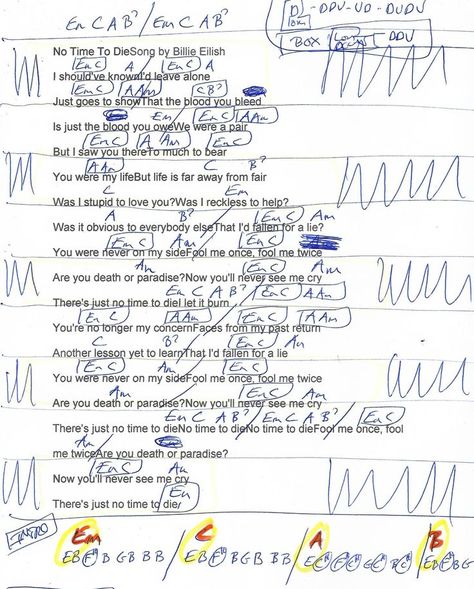 Em C A B⁷ / Em C A B⁷
D - DDV - UD - DUDU
BOX
BOX LOW DDV
No Time To DieSong by Billie Eilish
Em C A Em C A
I should've knownI'd leave alone
Em C A Am C B⁷
Just goes to showThat the blood you bleed
Em Em C A Am
Is just the blood you oweWe were a pair
Em C A Am Em C
But I saw you thereTo much to bear
A Am C B⁷
You were my lifeBut life is far away from fair
C Em
Was I stupid to love you?Was I reckless to help?
A B⁷ Em C Am
Was it obvious to everybody elseThat I'd fallen for a lie?
Em C Am Em C
You were never on my sideFool me once, fool me twice
Am Em C Am
Are you death or paradise?Now you'll never see me cry
Em C A B⁷ / Em C A Am
There's just no time to dieI let it burn
Em C A Am Em C A Am
You're no longer my concernFaces from my past return
C B⁷ Em C
Another lesson yet to learnThat I'd fallen for a lie
Am Em C Am Em C
You were never on my sideFool me once, fool me twice
Am Em C Am
Are you death or paradise?Now you'll never see me cry
Em C A B⁷ / Em C A B⁷ / Em C
There's just no time to dieNo time to dieNo time to dieFool me once, fool
Am
me twiceAre you death or paradise?
Em C Am
Now you'll never see me cry
Em
There's just no time to die
INTRO Em C A B
E B F# B G B B B / E B F# B G B B B / E C# F# C# G C# B C# / E B F# B G